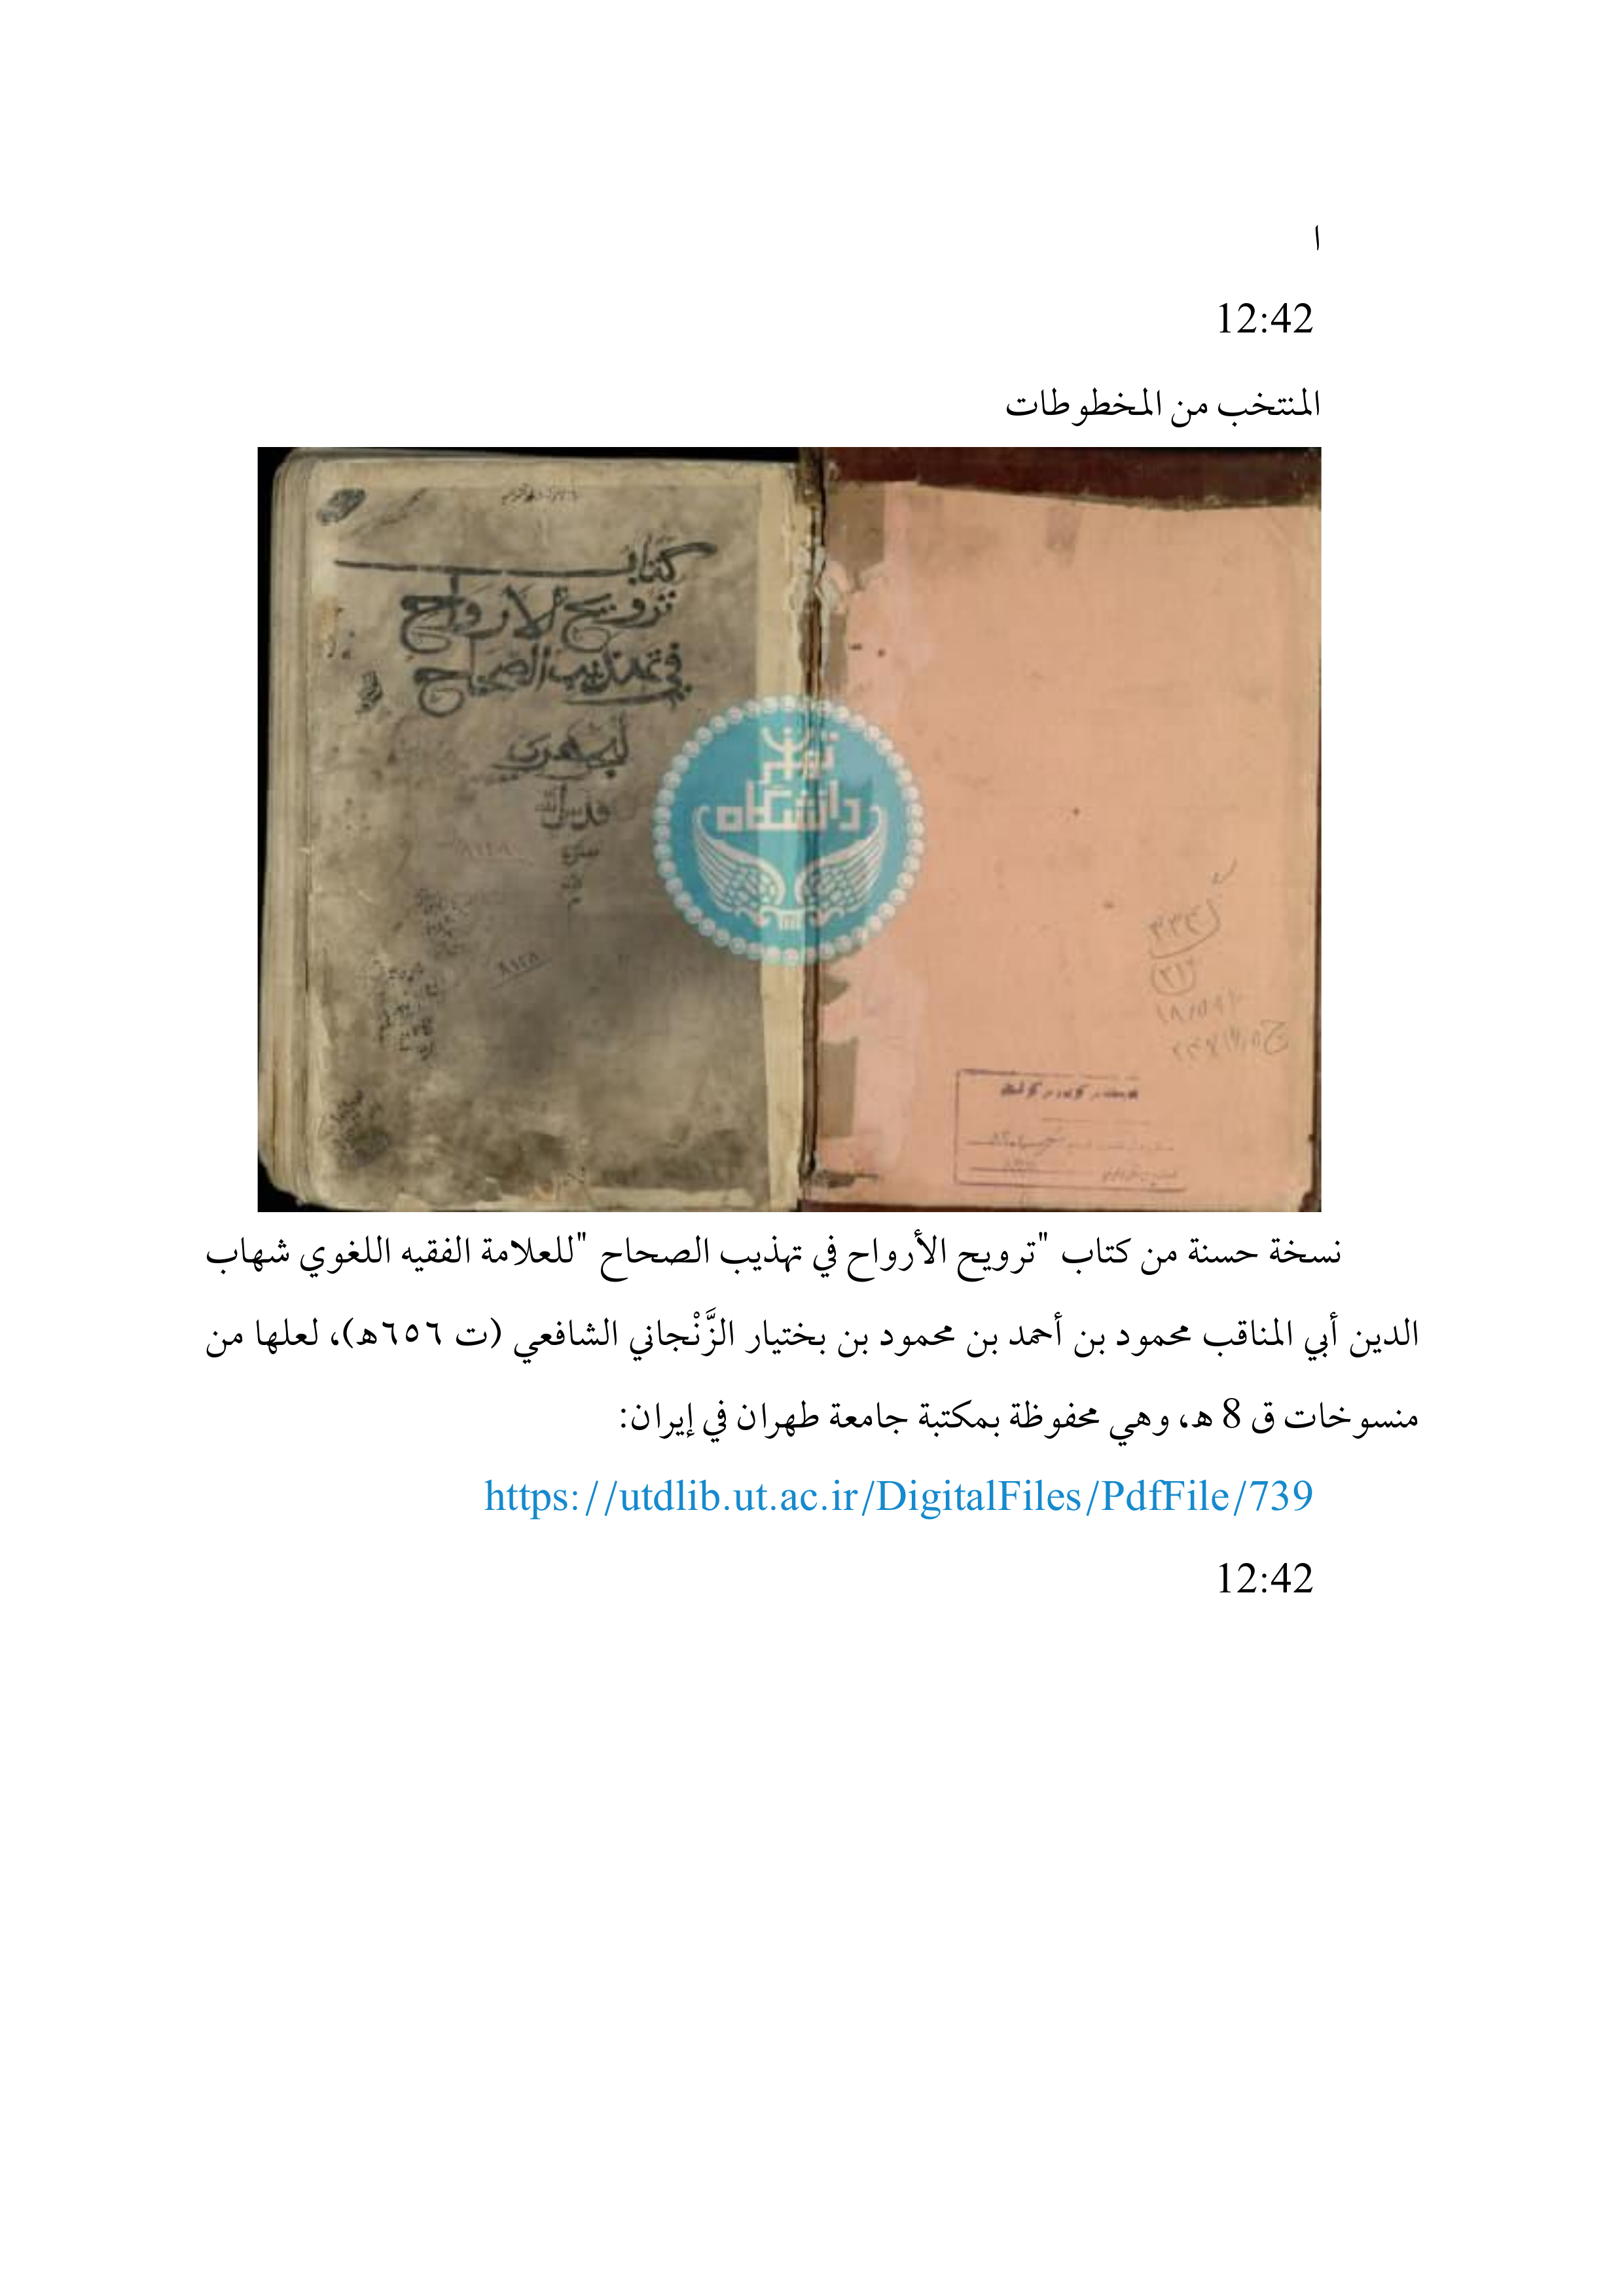 ا
12:42
المنتخب من المخطوطات
كتاب
ترويح الارواح
في تهذيب الصحاح
قدس الله
سره
٨١٢٨
تهران
دانشگاه
نسخة حسنة من كتاب "ترويح الأرواح في تهذيب الصحاح "للعلامة الفقيه اللغوي شهاب
الدين أبي المناقب محمود بن أحمد بن محمود بن بختيار الزَّنْجاني الشافعي (ت ٦٥٦هـ)، لعلها من
منسوخات ق 8 هـ، وهي محفوظة بمكتبة جامعة طهران في إيران:
https://utdlib.ut.ac.ir/DigitalFiles/PdfFile/739
12:42